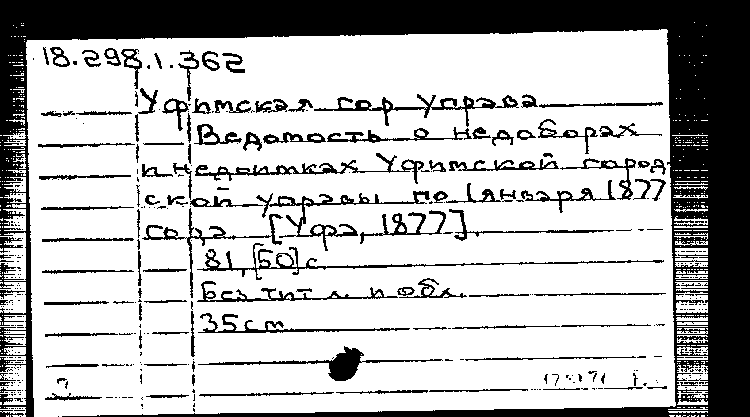 18.298.1.362
Уфимская гор управа
Ведомость о недоборах
и недоимках Уфимской город-
ской управы по 1 января 1877
года. [Уфа, 1877].
81, [50] с.
Без тит л. и обл.
35 см